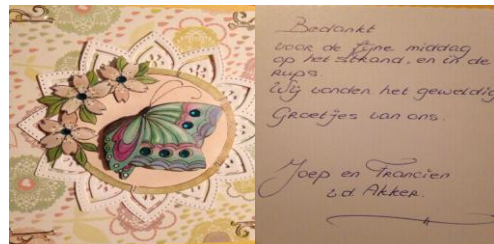 Bedankt
voor de fijne middag
op het strand, en in de
rups.
Wij vonden het geweldig
Groetjes van ons.
Joep en Francien
v.d. Akker.